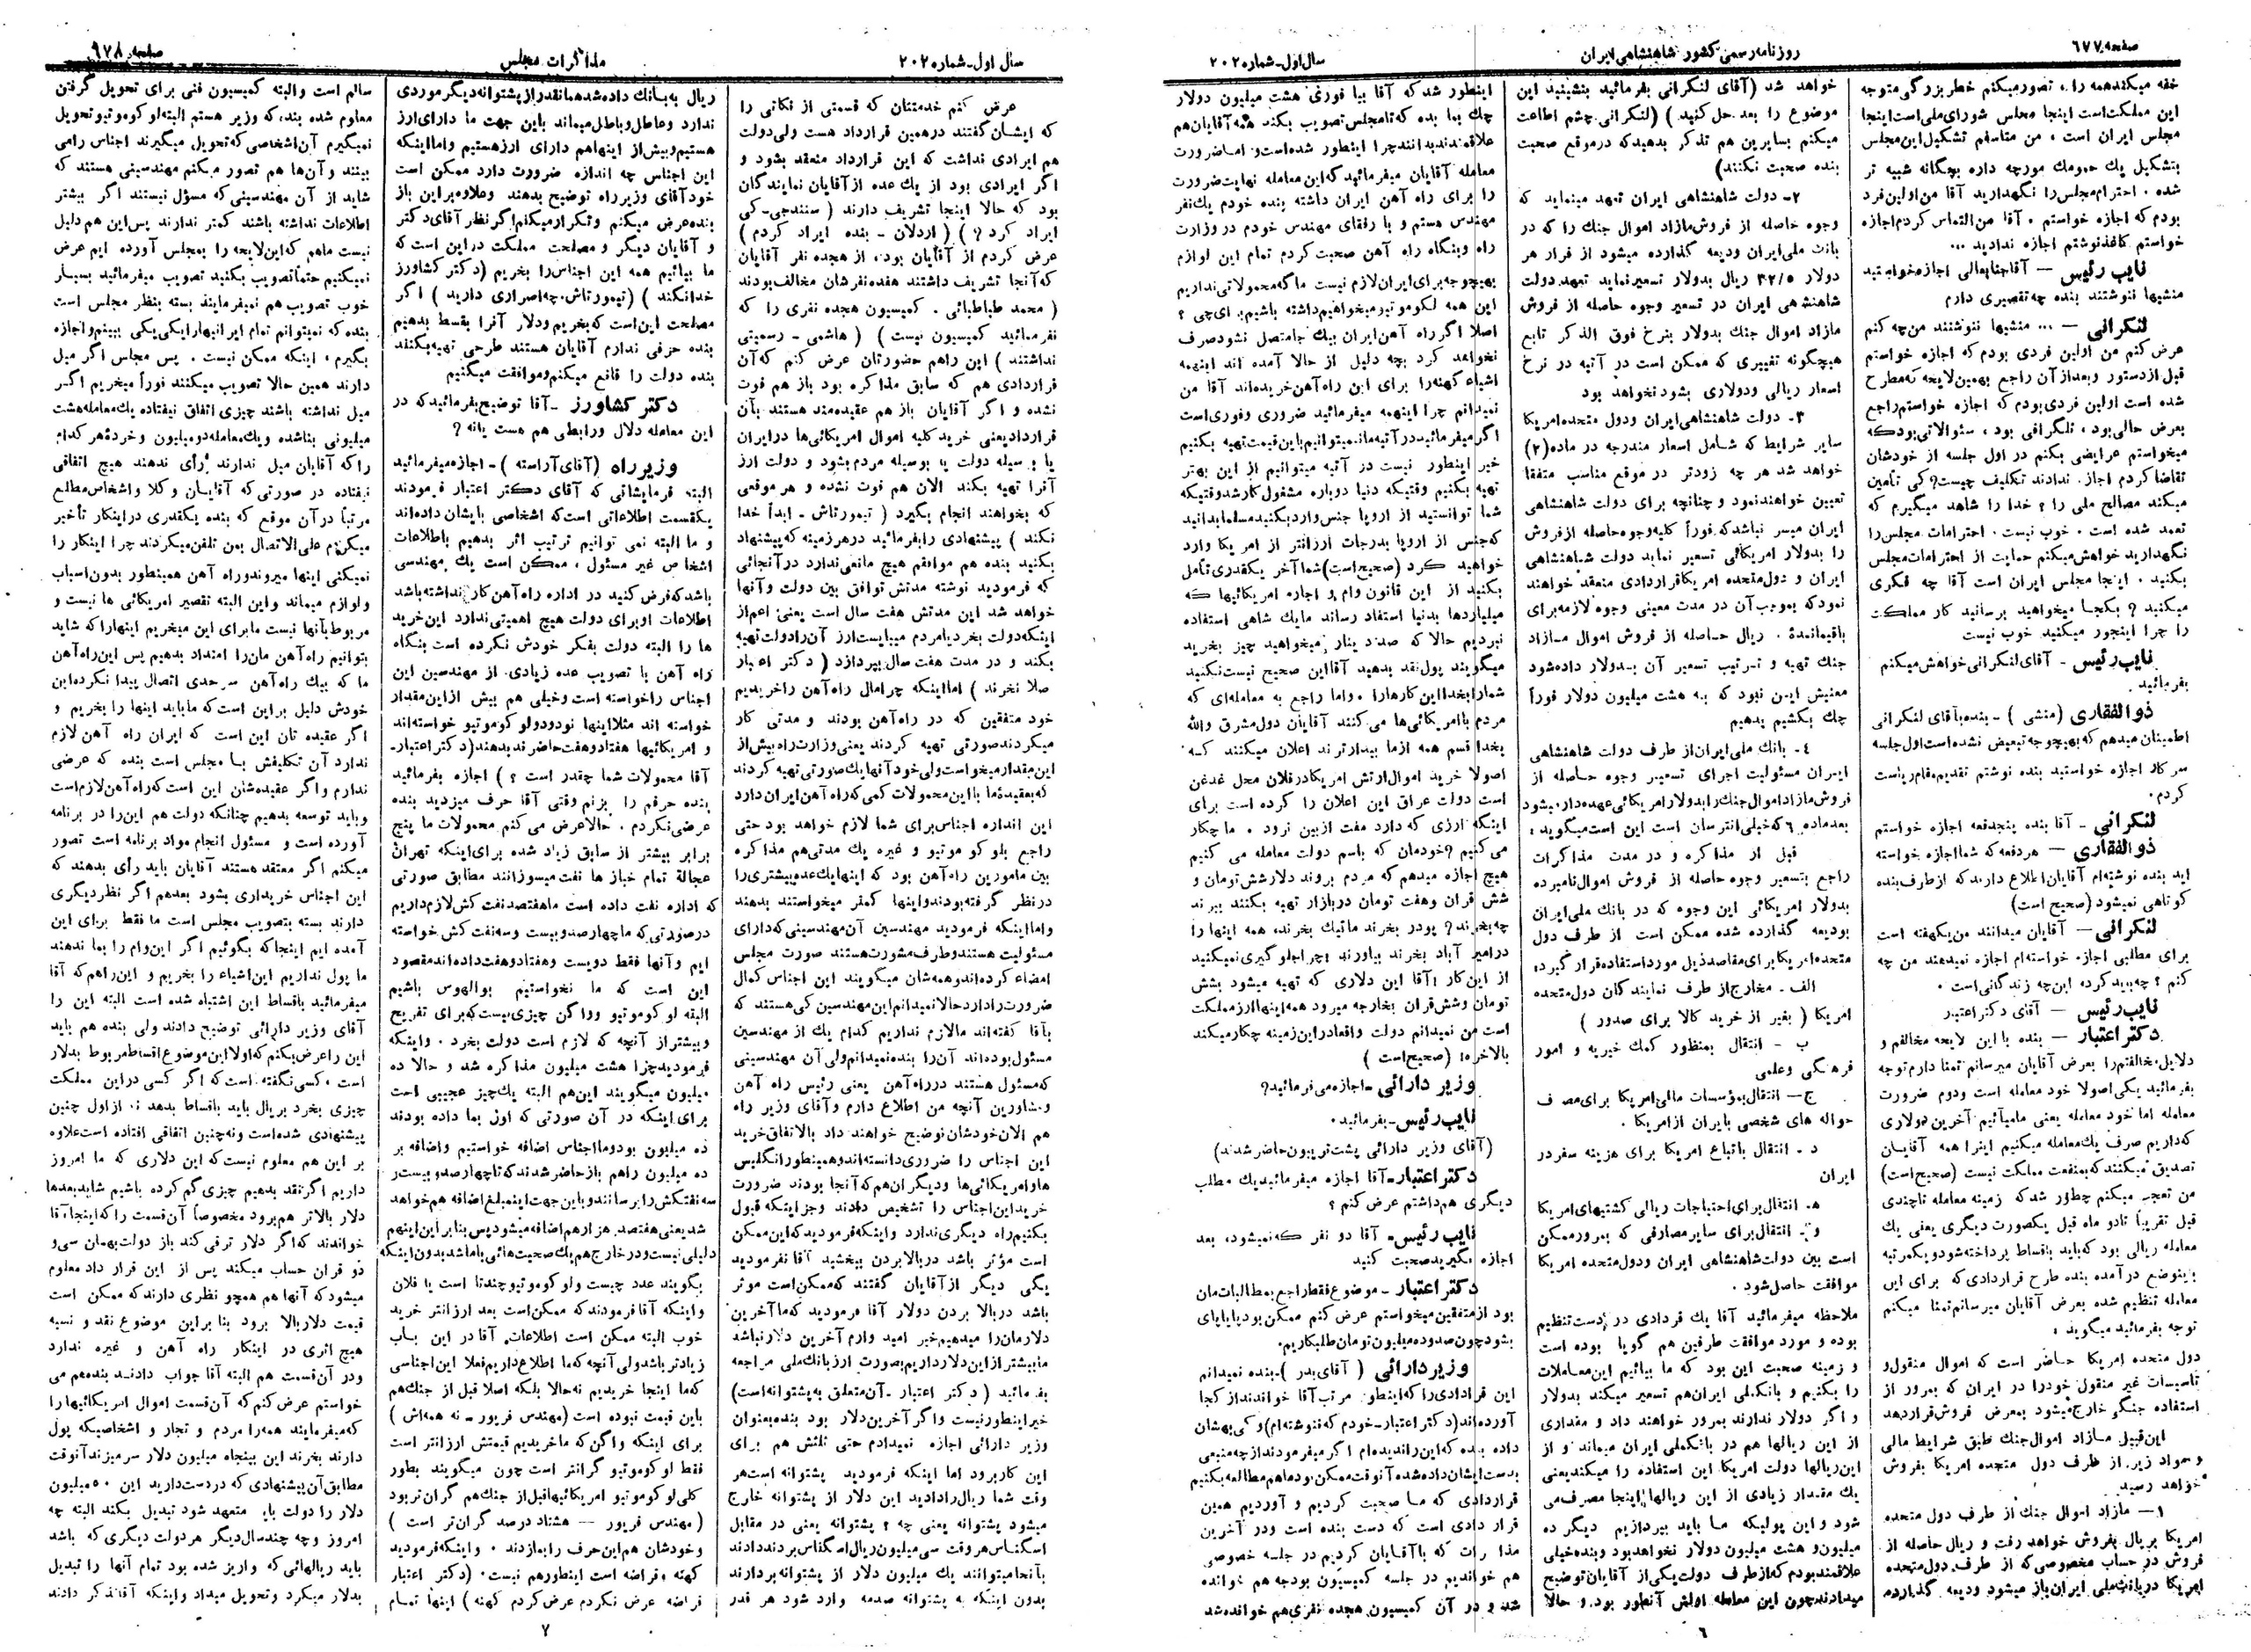 صفحه ٦٧٧
روزنامه رسمی کشور شاهنشاهی ایران
سال اول - شماره ۲۰۲
خفه میکند همه را، تصور میکنم خطر بزرگی متوجه
این مملکت است اینجا مجلس شورای ملی است اینجا
مجلس ایران است، من متاسفم تشکیل این مجلس
بتشکیل یك حومك مورچه داره بچگانه شبیه تر
شده. احترام مجلس را نگهدارید آقا من اولین فرد
بودم که اجازه خواستم. آقا من التماس کردم اجازه
خواستم کاغذ نوشتم اجازه ندادید ...
نایب رئیس — آقا جنابعالی اجازه خواستید
منشیها ننوشتند بنده چه تقصیری دارم
لنکرانی — ... منشیها ننوشتند من چه کنم
عرض کنم من اولین فردی بودم که اجازه خواستم
قبل از دستور و بعد از آن راجع بهمین لایحه که مطرح
شده است اولین فردی بودم که اجازه خواستم راجع
بعرض حالی بود، تلگرافی بود، سئوالاتی بود که
میخواستم عرایضی بکنم در اول جلسه از خودشان
تقاضا کردم اجازه ندادند تکلیف چیست؟ کی تأمین
میکند مصالح ملی را؟ خدا را شاهد میگیرم که
تعمد شده است. خوب نیست. احترامات مجلس را
نگهدارید خواهش میکنم حمایت از احترامات مجلس
بکنید. اینجا مجلس ایران است آقا چه فکری
میکنید؟ بکجا میخواهید برسانید کار مملکت
را چرا اینجور میکنید خوب نیست
نایب رئیس - آقای لنکرانی خواهش میکنم
بفرمائید.
ذوالفقاری (منشی) - بنده بآقای لنکرانی
اطمینان میدهم که بهیچوجه تبعیض نشده است اول جلسه
سرکار اجازه خواستید بنده نوشتم تقدیم مقام ریاست
کردم.
لنکرانی - آقا بنده پنجدفعه اجازه خواستم
ذوالفقاری — هر دفعه که شما اجازه خواسته
اید بنده نوشته‌ام آقایان اطلاع دارند که از طرف بنده
کوتاهی نمیشود (صحیح است)
لنکرانی — آقایان میدانند من یکهفته است
برای مطلبی اجازه خواسته‌ام اجازه نمیدهند من چه
کنم؟ چه بدکرده این چه زندگانی است.
نایب رئیس — آقای دکتر اعتبار
دکتر اعتبار — بنده با این لایحه مخالفم و
دلایل مخالفتم را بعرض آقایان میرسانم تمنا دارم توجه
بفرمائید یکی اصولا خود معامله است ودوم ضرورت
معامله اما خود معامله یعنی ما میائیم آخرین دولاری
که داریم صرف یك معامله میکنیم اینرا همه آقایان
تصدیق میکنند که بمنفعت مملکت نیست (صحیح است)
من تعجب میکنم چطور شد که زمینه معامله تا چندی
قبل تقریباً تا دو ماه قبل یکصورت دیگری یعنی یك
معامله ریالی بود که باید باقساط پرداخته شود و یکمرتبه
باینوضع درآمده بنده طرح قراردادی که برای این
معامله تنظیم شده بعرض آقایان میرسانم تمنا میکنم
توجه بفرمائید میگوید:
دول متحده امریکا حاضر است که اموال منقول و
تاسیسات غیر منقول خود را در ایران که بمرور از
استفاده جنگی خارج میشود بمعرض فروش قرار دهد
این قبیل مازاد اموال جنك طبق شرایط مالی
و مواد زیر از طرف دول متحده امریکا بفروش
خواهد رسید
۱ — مازاد اموال جنك از طرف دول متحده
امریکا بریال بفروش خواهد رفت و ریال حاصله از
فروش در حساب مخصوصی که از طرف دول متحده
امریکا در بانك ملی ایران باز میشود ودیعه گذارده
خواهد شد (آقای لنکرانی بفرمائید بنشینید این
موضوع را بعد حل کنید.) (لنکرانی چشم اطاعت
میکنم بسایرین هم تذکر بدهید که در موقع صحبت
بنده صحبت نکنند)
۲- دولت شاهنشاهی ایران تعهد مینماید که
وجوه حاصله از فروش مازاد اموال جنك را که در
بانك ملی ایران ودیعه گذارده میشود از قرار هر
دولار ۳۲/۵ ریال بدولار تسعیر نماید تعهد دولت
شاهنشاهی ایران در تسعیر وجوه حاصله از فروش
مازاد اموال جنك بدولار بنرخ فوق الذکر تابع
هیچگونه تغییری که ممکن است در آتیه در نرخ
اسعار ریالی و دولاری بشود نخواهد بود
۳- دولت شاهنشاهی ایران و دول متحده امریکا
سایر شرایط که شامل اسعار مندرجه در ماده (۲)
خواهد شد هر چه زودتر در موقع مناسب متفقا
تعیین خواهند نمود و چنانچه برای دولت شاهنشاهی
ایران میسر نباشد که فوراً کلیه وجوه حاصله از فروش
را بدولار امریکائی تسعیر نماید دولت شاهنشاهی
ایران و دول متحده امریکا قراردادی منعقد خواهند
نمود که بموجب آن در مدت معینی وجوه لازمه برای
باقیمانده ریال حاصله از فروش اموال مازاد
جنك تهیه و ترتیب تسعیر آن بدولار داده شود
معنیش این نبود که به هشت میلیون دولار فوراً
چك بکشیم بدهیم
٤- بانك ملی ایران از طرف دولت شاهنشاهی
ایران مسئولیت اجرای تسعیر وجوه حاصله از
فروش مازاد اموال جنك را بدولار امریکائی عهده دار میشود
بعد ماده ٦ که خیلی انترسان است این است میگوید:
قبل از مذاکره و در مدت مذاکرات
راجع بتسعیر وجوه حاصله از فروش اموال نامبرده
بدولار امریکائی این وجوه که در بانك ملی ایران
بودیعه گذارده شده ممکن است از طرف دول
متحده امریکا برای مقاصد ذیل مورد استفاده قرار گیرد:
الف - مخارج از طرف نمایندگان دول متحده
امریکا (بغیر از خرید کالا برای صدور)
ب - انتقال بمنظور کمك خیریه و امور
فرهنگی و علمی
ج — انتقال بمؤسسات مالی امریکا برای مصرف
حواله های شخصی بایران از امریکا.
د - انتقال باتباع امریکا برای هزینه سفر در
ایران
ه - انتقال برای احتیاجات ریالی کشتیهای امریکا
و - انتقال برای سایر مصارفی که بمرور ممکن
است بین دولت شاهنشاهی ایران و دول متحده امریکا
موافقت حاصل شود.
ملاحظه میفرمائید آقا یك قردادی در دست تنظیم
بوده و مورد موافقت طرفین هم گویا بوده است
و زمینه صحبت این بود که ما بیائیم این معاملات
را بکنیم و بانك ملی ایران هم تسعیر میکند بدولار
و اگر دولار ندارند بمرور خواهند داد و مقداری
از این ریالها هم در بانك ملی ایران میماند و از
این ریالها دولت امریکا این استفاده را میکند یعنی
یك مقدار زیادی از این ریالها اینجا مصرف می
شود و این پولیکه ما باید بپردازیم دیگر ده
میلیون و هشت میلیون دولار نخواهد بود و بنده خیلی
علاقمند بودم که از طرف دولت یکی از آقایان توضیح
میدادند چون این معامله اولش آنطور بود و حالا
اینطور شد که آقا بیا فوری هشت میلیون دولار
چك بما بده که تا مجلس تصویب بکند همه آقایان هم
علاقمندند بدانند چرا اینطور شده است و اما ضرورت
معامله آقایان میفرمائید که این معامله نهایت ضرورت
را برای راه آهن ایران داشته بنده خودم یك نفر
مهندس هستم و با رفقای مهندس خودم در وزارت
راه و بنگاه راه آهن صحبت کردم تمام این لوازم
بهیچوجه برای ایران لازم نیست ما که محمولاتی نداریم
این همه لکوموتیو میخواهیم داشته باشیم، برای چی؟
اصلا اگر راه آهن ایران بیك جا متصل نشود صرف
نخواهد کرد بچه دلیل از حالا آمده اند اینهمه
اشیاء کهنه را برای این راه آهن خریده‌اند آقا من
نمیدانم چرا اینهمه میفرمائید ضروری و فوری است
اگر میفرمائید در آتیه ما نمیتوانیم باین قیمت تهیه بکنیم
خیر اینطور نیست در آتیه میتوانیم از این بهتر
تهیه بکنیم وقتیکه دنیا دوباره مشغول کار شد و قتیکه
شما توانستید از اروپا جنس وارد بکنید مسلما بدانید
که جنس از اروپا بدرجات ارزانتر از امریکا وارد
خواهید کرد (صحیح است) شما آخر یکقدری تأمل
بکنید از این قانون وام و اجاره امریکائیها که
میلیاردها بدنیا استفاده رساند ما یك شاهی استفاده
نبردیم حالا که صد دینار میخواهید چیز بخرید
میگویند پول نقد بدهید آقا این صحیح نیست نکنید
شما را بخدا این کارها را، و اما راجع به معامله‌ای که
مردم با امریکائی‌ها می کنند آقایان دول مشرق والله
بخدا قسم همه از ما بیدارترند اعلان میکنند که
اصولا خرید اموال ارتش امریکا در فلان محل غدغن
است دولت عراق این اعلان را کرده است برای
اینکه ارزی که دارد مفت از بین نرود. ما چکار
می‌کنیم؟ خودمان که باسم دولت معامله می کنیم
هیچ اجازه میدهم که مردم بروند دلار شش تومان و
شش قران و هفت تومان در بازار تهیه بکنند ببرند
چه بخرند؟ پودر بخرند ماتیك بخرند، همه اینها را
در امیر آباد بخرند بیاورند چرا جلوگیری نمیکنید
از این کار؟ آقا این دلاری که تهیه میشود بشش
تومان و شش قران بخارجه میرود همه اینها ارز مملکت
است من نمیدانم دولت واقعا در این زمینه چکار میکند
بالاخره؛ (صحیح است)
وزیر دارائی - اجازه می فرمائید؟
نایب رئیس - بفرمائید.
(آقای وزیر دارائی پشت تریبون حاضر شدند)
دکتر اعتبار - آقا اجازه میفرمائید یك مطلب
دیگری هم داشتم عرض کنم؟
نایب رئیس - آقا دو نفر که نمیشود، بعد
اجازه بگیرید صحبت کنید
دکتر اعتبار - موضوع فقط راجع بمطالبات مان
بود از متفقین میخواستم عرض کنم ممکن بود با پایاپای
بشود چون صد و ده میلیون تومان طلبکاریم.
وزیر دارائی (آقای بدر) - بنده نمیدانم
این قراردادی را که اینطور مرتب آقا خواندند از کجا
آورده‌اند (دکتر اعتبار - خودم که ننوشته‌ام) و کی بهشان
داده بنده که این را ندیده‌ام اگر میفرمودند از چه منبعی
بدست ایشان داده شده آنوقت ممکن بود ما هم مطالعه بکنیم
قراردادی که ما صحبت کردیم و آوردیم همین
قراردادی است که دست بنده است و در آخرین
مذاکرات که با آقایان کردیم در جلسه خصوصی
هم خواندیم در جلسه کمیسیون بودجه هم خوانده
شد و در آن کمیسیون هجده نفری هم خوانده شد
٦
سال اول - شماره ۲۰۲
مذاکرات مجلس
صفحه ٩٧٨
عرض کنم خدمتتان که قسمتی از نکاتی را
که ایشان گفتند در همین قرارداد هست ولی دولت
هم ایرادی نداشت که این قرارداد منعقد بشود و
اگر ایرادی بود از یك عده از آقایان نمایندگان
بود که حالا اینجا تشریف دارند (سنندجی - کی
ایراد کرد؟) (اردلان - بنده ایراد کردم)
عرض کردم از آقایان بود، از هجده نفر آقایان
که آنجا تشریف داشتند هفده نفرشان مخالف بودند
(محمد طباطبائی. کمیسیون هجده نفری را که
نفرمائید کمیسیون نیست) (هاشمی - رسمیتی
نداشتند) این را هم حضورتان عرض کنم که آن
قراردادی هم که سابق مذاکره بود باز هم فوت
نشده و اگر آقایان باز هم عقیده‌مند هستند بآن
قرارداد یعنی خرید کلیه اموال امریکائی‌ها در ایران
یا بوسیله دولت یا بوسیله مردم بشود و دولت ارز
آنرا تهیه بکند الان هم فوت نشده و هر موقعی
که بخواهند انجام بگیرد (تیمورتاش - ابداً خدا
نکند) پیشنهادی را بفرمائید در هر زمینه که پیشنهاد
بکنید بنده هم موافقم هیچ مانعی ندارد در آنجائی
که فرمودید نوشته مدتش توافق بین دولت و آنها
خواهد شد این مدتش هفت سال است یعنی اعم از
اینکه دولت بخرد یا مردم میبایست ارز آن را دولت تهیه
بکند و در مدت هفت سال بپردازد (دکتر اعتبار
اصلا نخرند) اما اینکه چرا مال راه آهن را خریدیم
خود متفقین که در راه آهن بودند و مدتی کار
میکردند صورتی تهیه کردند یعنی وزارت راه بیش از
این مقدار میخواست ولی خود آنها یك صورتی تهیه کردند
که بعقیده ما با این محمولات کمی که راه آهن ایران دارد
این اندازه اجناس برای شما لازم خواهد بود حتی
راجع بلوکوموتیو و غیره یك مدتی هم مذاکره
بین مامورین راه آهن بود که اینها یك عده بیشتری را
در نظر گرفته بودند و اینها کمتر میخواستند بدهند
و اما اینکه فرمودید مهندسین آن مهندسینی که دارای
مسئولیت هستند و طرف مشورت هستند صورت مجلس
امضاء کرده‌اند و همه‌شان میگویند این اجناس کمال
ضرورت را دارد حالا نمیدانم این مهندسین کی هستند که
بآقا گفته‌اند ما لازم نداریم کدام یك از مهندسین
مسئول بوده‌اند آن را بنده نمیدانم ولی آن مهندسینی
که مسئول هستند در راه آهن یعنی رئیس راه آهن
و مشاورین آنچه من اطلاع دارم و آقای وزیر راه
هم الان خودشان توضیح خواهند داد بالاتفاق خرید
این اجناس را ضروری دانسته‌اند و همینطور انگلیس
ها و امریکائی‌ها و دیگران هم که آنجا بودند ضرورت
خرید این اجناس را تشخیص دادند و جز اینکه قبول
بکنیم راه دیگری ندارد و اینکه فرمودید که این ممکن
است مؤثر باشد در بالا بردن ببخشید آقا نفرمودید
یکی دیگر از آقایان گفتند که ممکن است موثر
باشد در بالا بردن دولار آقا فرمودید که ما آخرین
دلارمان را میدهیم خیر امید وارم آخرین دلار نباشد
ما بیشتر از این دلار داریم بصورت ارز بانك ملی مراجعه
بفرمائید (دکتر اعتبار - آن متعلق به پشتوانه است)
خیر اینطور نیست و اگر آخرین دلار بود بنده بعنوان
وزیر دارائی اجازه نمیدادم حتی ثلثش هم برای
این کار برود اما اینکه فرمودید پشتوانه است هر
وقت شما ریال را دادید این دلار از پشتوانه خارج
میشود پشتوانه یعنی چه؟ پشتوانه یعنی در مقابل
اسکناس هر وقت سی میلیون ریال اسکناس بردند دادند
بآنجا میتوانند یك میلیون دلار از پشتوانه بردارند
بدون اینکه به پشتوانه صدمه وارد شود هر قدر
ریال به بانك داده شد همانقدر از پشتوانه دیگر موردی
ندارد و عاطل و باطل میماند باین جهت ما دارای ارز
هستیم و بیش از اینها هم دارای ارز هستیم و اما اینکه
این اجناس چه اندازه ضرورت دارد ممکن است
خود آقای وزیر راه توضیح بدهند و علاوه بر این باز
بنده عرض میکنم و تکرار میکنم اگر نظر آقای دکتر
و آقایان دیگر و مصلحت مملکت در این است که
ما بیائیم همه این اجناس را بخریم (دکتر کشاورز
خدا نکند) (تیمورتاش. چه اصراری دارید) اگر
مصلحت این است که بخریم و دلار آنرا بقسط بدهیم
بنده حرفی ندارم آقایان هستند طرحی تهیه بکنند
بنده دولت را قانع میکنم و موافقت میکنیم
دکتر کشاورز - آقا توضیح بفرمائید که در
این معامله دلال و رابطی هم هست یا نه؟
وزیر راه (آقای آراسته) - اجازه میفرمائید
البته فرمایشاتی که آقای دکتر اعتبار فرمودند
یکقسمت اطلاعاتی است که اشخاصی بایشان داده‌اند
و ما البته نمی توانیم ترتیب اثر بدهیم باطلاعات
اشخاص غیر مسئول، ممکن است یك مهندسی
باشد که فرض کنید در اداره راه آهن کار نداشته باشد
اطلاعات او برای دولت هیچ اهمیتی ندارد این خرید
ها را البته دولت بفکر خودش نکرده است بنگاه
راه آهن با تصویب عده زیادی از مهندسین این
اجناس را خواسته است و خیلی هم بیش از این مقدار
خواسته اند مثلا اینها نود و دو لوکوموتیو خواسته‌اند
و امریکائیها هفتاد و هفت حاضرند بدهند (دکتر اعتبار-
آقا محمولات شما چقدر است؟) اجازه بفرمائید
بنده حرفم را بزنم وقتی آقا حرف میزدید بنده
عرضی نکردم. حالا عرض می کنم محمولات ما پنج
برابر بیشتر از سابق زیاد شده برای اینکه تهران
عجالة تمام خباز ها نفت میسوزانند مطابق صورتی
که اداره نفت داده است ما هفتصد نفت کش لازم داریم
در صورتی که ما چهار صد و بیست و سه نفت کش خواسته
ایم و آنها فقط دویست و هفتاد و هفت داده‌اند مقصود
این است که ما نخواستیم بوالهوس باشیم
البته لوکوموتیو و واگن چیزی نیست که برای تفریح
و بیشتر از آنچه که لازم است دولت بخرد. و اینکه
فرمودید چرا هشت میلیون مذاکره شد و حالا ده
میلیون میگویند این هم البته یك چیز عجیبی است
برای اینکه در آن صورتی که اول بما داده بودند
ده میلیون بود و ما اجناس اضافه خواستیم و اضافه بر
ده میلیون را هم باز حاضر شدند که تا چهار صد و بیست و
سه نفتکش را برسانند و باین جهت این مبلغ اضافه هم خواهد
شد یعنی هفتصد هزار هم اضافه میشود پس بنا بر این اینهم
دلیلی نیست و در خارج هم یك صحبت هائی با ما شد بدون اینکه
بگویند عدد چیست و لوکوموتیو چندتا است یا فلان
و اینکه آقا فرمودند که ممکن است بعد ارزانتر خرید
خوب البته ممکن است اطلاعات آقا در این باب
زیادتر باشد ولی آنچه که ما اطلاع داریم فعلا این اجناسی
که ما اینجا خریدیم نه حالا بلکه اصلا قبل از جنك هم
باین قیمت نبوده است (مهندس فریور - نه همه‌اش)
برای اینکه واگن که ما خریدیم قیمتش ارزانتر است
فقط لوکوموتیو گرانتر است چون میگویند بطور
کلی لوکوموتیو امریکائیها قبل از جنك هم گران‌تر بود
(مهندس فریور — هشتاد درصد گران‌تر است)
و خودشان هم این حرف را بما زدند. و اینکه فرمودید
کهنه، قراضه است اینطور هم نیست. (دکتر اعتبار
قراضه عرض نکردم عرض کردم کهنه) اینها تمام
سالم است و البته کمیسیون فنی برای تحویل گرفتن
معلوم شده بند، که وزیر هستم البته لوکوموتیو تحویل
نمیگیرم آن اشخاصی که تحویل میگیرند اجناس را می
بینند و آن‌ها هم تصور میکنم مهندسینی هستند که
شاید از آن مهندسینی که مسؤل نیستند اگر بیشتر
اطلاعات نداشته باشند کمتر ندارند پس این هم دلیل
نیست ما هم که این لایحه را بمجلس آورده ایم عرض
نمیکنیم حتماً تصویب بکنید تصویب میفرمائید بسیار
خوب تصویب هم نمیفرمایند بسته بنظر مجلس است
بنده که نمیتوانم تمام ایرانیها را یکی یکی ببینم و اجازه
بگیرم، اینکه ممکن نیست. پس مجلس اگر میل
دارند همین حالا تصویب میکنند فوراً میخریم اگر
میل نداشته باشند چیزی اتفاق نیفتاده یك معامله هشت
میلیونی بناشده و یك معامله دو میلیون و خرده هر کدام
را که آقایان میل ندارند رأی ندهند هیچ اتفاقی
نیفتاده در صورتی که آقایان وکلا و اشخاص مطلع
مرتباً در آن موقع که بنده یکقدری در اینکار تأخیر
میکردم علی‌الاتصال بمن تلفن میکردند چرا اینکار را
نمیکنی اینها میروند و راه آهن همینطور بدون اسباب
و لوازم میماند و این البته تقصیر امریکائی ها نیست و
مربوط بآنها نیست ما برای این میخریم اینها را که شاید
بتوانیم راه آهن مان را امتداد بدهیم پس این راه آهن
ما که بیك راه آهن سرحدی اتصال پیدا نکرده این
خودش دلیل بر این است که ما باید اینها را بخریم و
اگر عقیده تان این است که ایران راه آهن لازم
ندارد آن تکلیفش با مجلس است بنده که عرضی
ندارم و اگر عقیده‌شان این است که راه آهن لازم است
و باید توسعه بدهیم چنانکه دولت هم این را در برنامه
آورده است و مسئول انجام مواد برنامه است تصور
میکنم اگر معتقد هستند آقایان باید رأی بدهند که
این اجناس خریداری بشود بعد هم اگر نظر دیگری
دارند بسته بتصویب مجلس است ما فقط برای این
آمده ایم اینجا که بگوئیم اگر این وام را بما ندهند
ما پول نداریم این اشیاء را بخریم و این را هم که آقا
میفرمائید باقساط این اشتباه شده است البته این را
آقای وزیر دارائی توضیح دادند ولی بنده هم باید
این را عرض بکنم که اولا این موضوع اقساط مربوط بدلار
است، کسی نگفته است که اگر کسی در این مملکت
چیزی بخرد بریال باید باقساط بدهد نه از اول چنین
پیشنهادی شده است و نه چنین اتفاقی افتاده است علاوه
بر این هم معلوم نیست که این دلاری که ما امروز
داریم اگر نقد بدهیم چیزی گم کرده باشیم شاید بعدها
دلار بالاتر هم برود مخصوصاً آن قسمت را که اینجا آقا
خواندند که اگر دلار ترقی کند باز دولت بهمان سی و
دو قران حساب میکند پس از این قرار داد معلوم
میشود که آنها هم همچو نظری دارند که ممکن است
قیمت دلار بالا برود بنا بر این موضوع نقد و نسیه
هیچ اثری در اینکار راه آهن و غیره ندارد
و در آن قسمت هم البته آقا جواب دادند بنده هم می
خواستم عرض کنم که آن قسمت اموال امریکائیها را
که میفرمایند همه را مردم و تجار و اشخاصیکه پول
دارند بخرند این پنجاه میلیون دلار سر میزند آنوقت
مطابق آن پیشنهادی که در دست دارید این ۵۰ میلیون
دلار را دولت باید متعهد شود تبدیل بکند البته چه
امروز و چه چند سال دیگر هر دولت دیگری که باشد
باید ریالهائی که واریز شده بود تمام آنها را تبدیل
بدلار میکرد و تحویل میداد و اینکه آقا تذکر دادند
۷